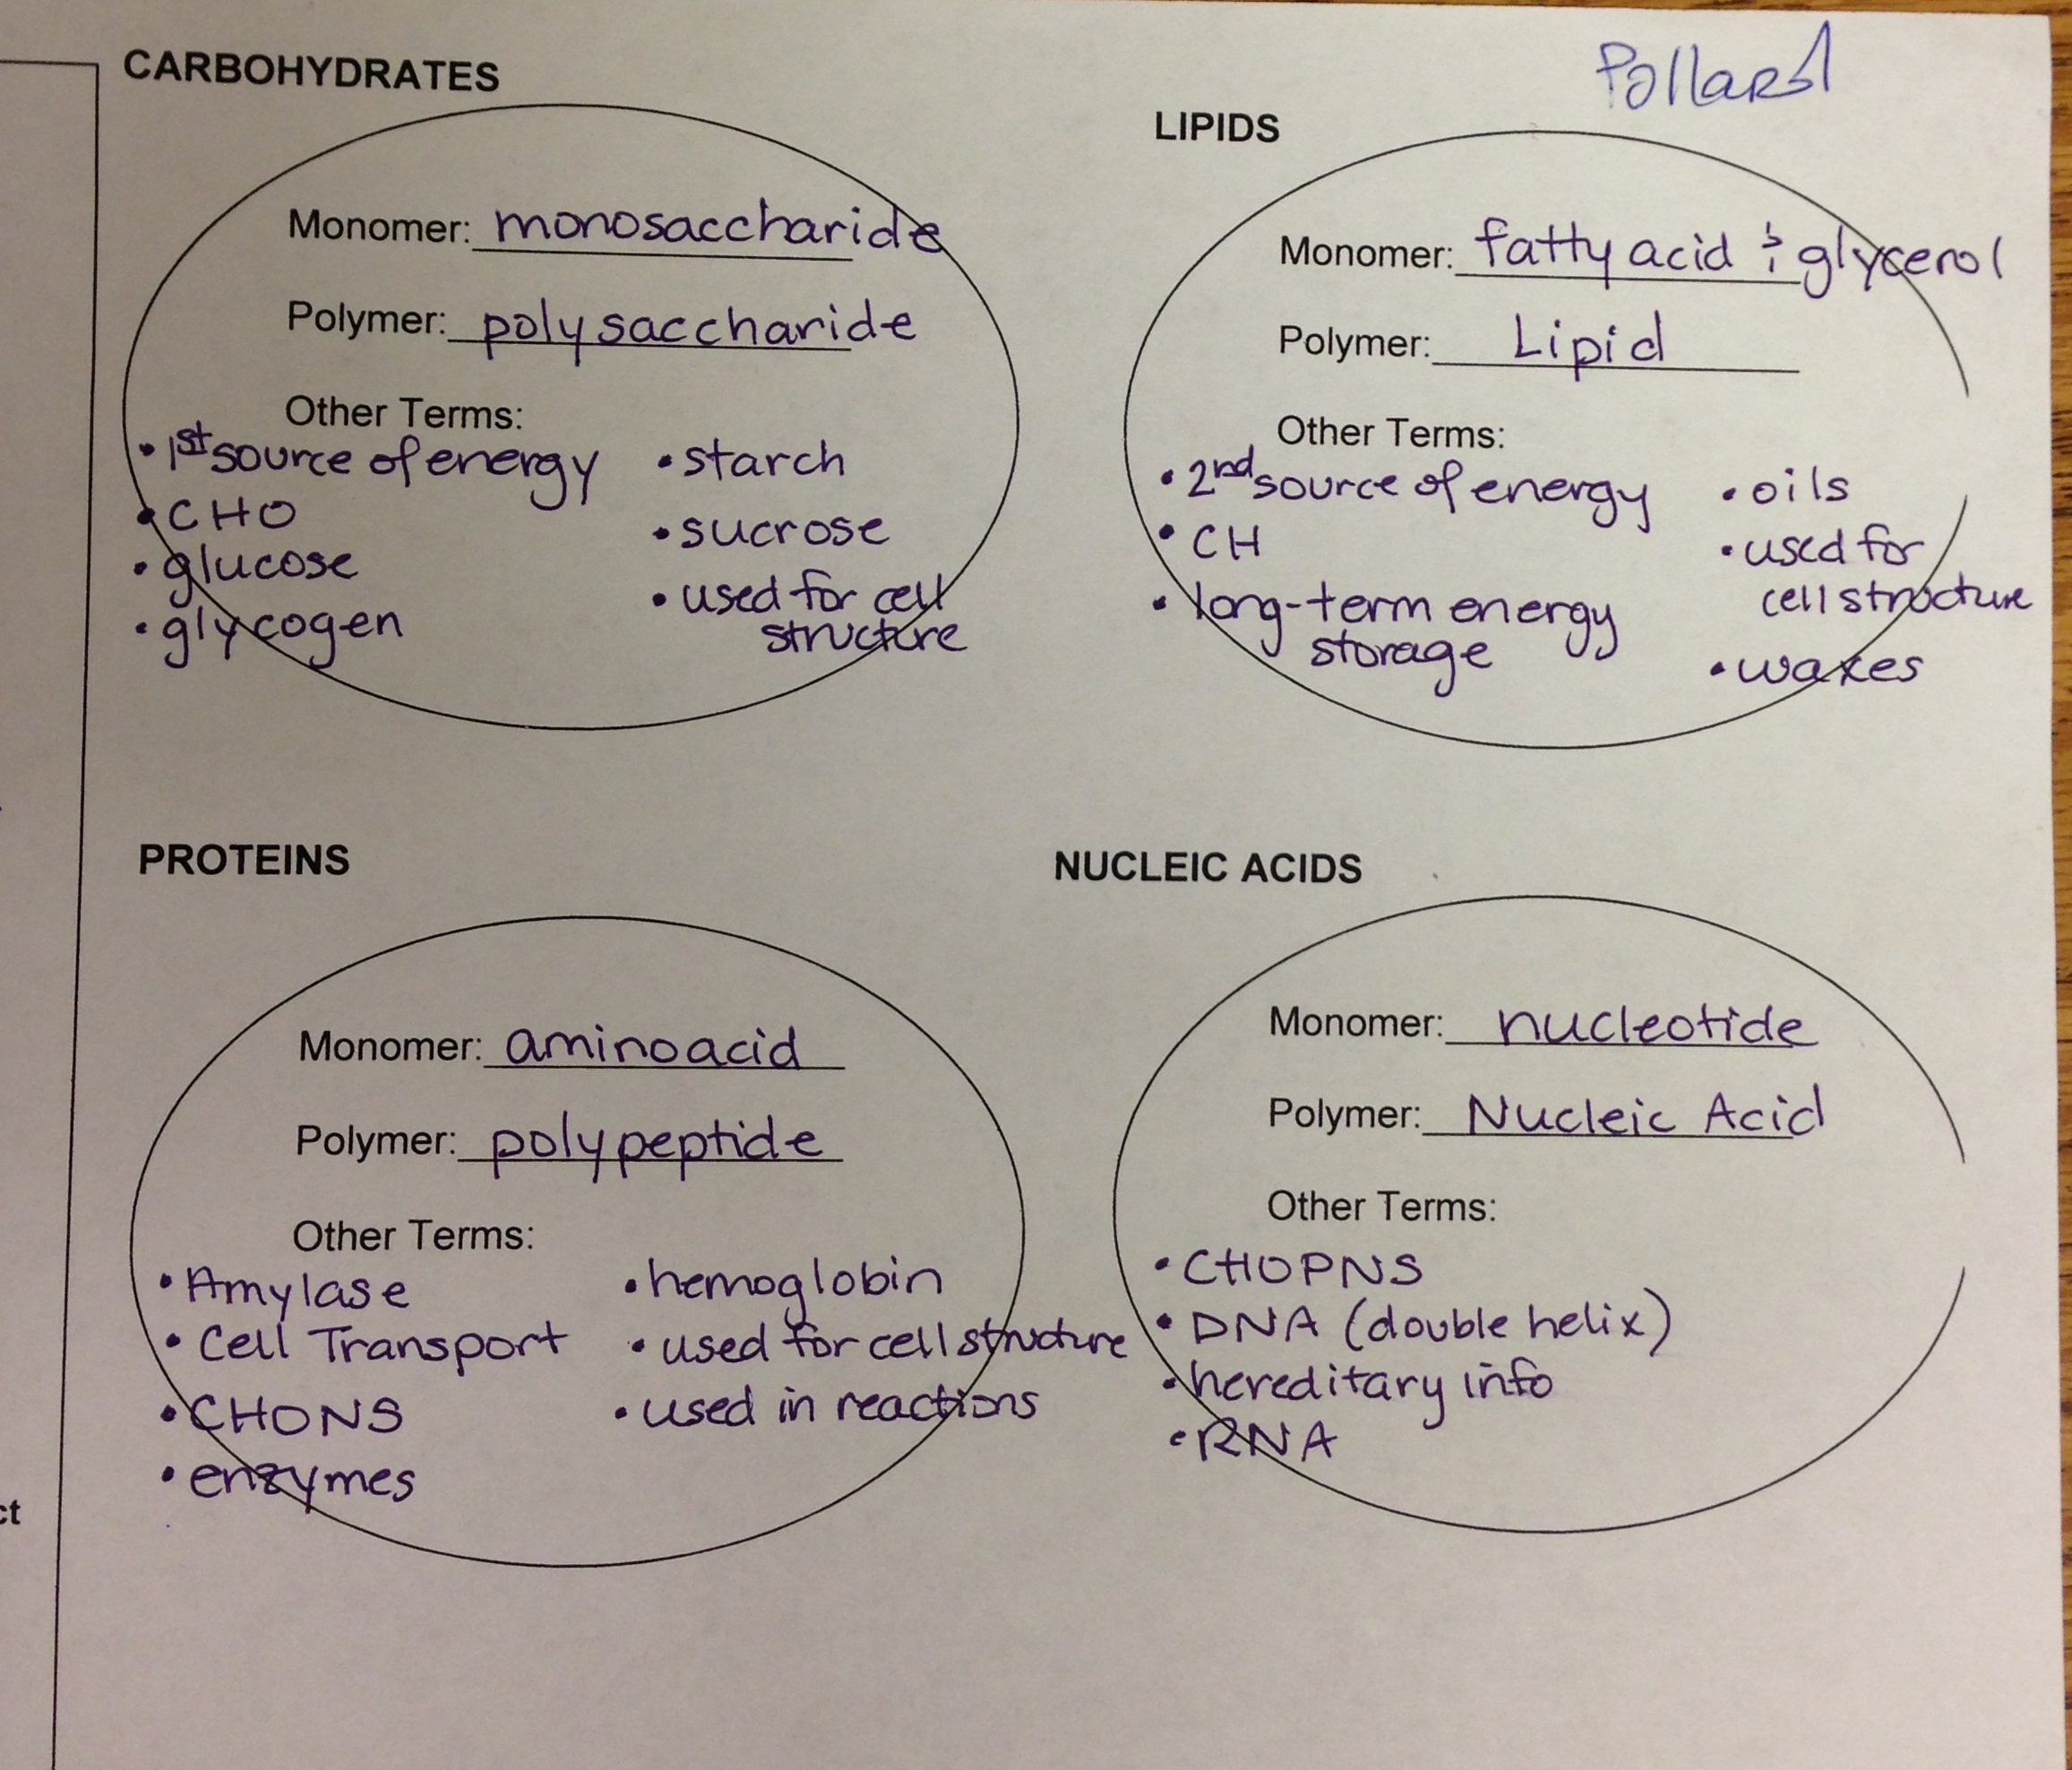 Pollard
CARBOHYDRATES
Monomer: monosaccharide
Polymer: polysaccharide
Other Terms:
• 1st source of energy
• CHO
• glucose
• glycogen
• starch
• sucrose
• used for cell
structure
LIPIDS
Monomer: fatty acid & glycerol
Polymer: Lipid
Other Terms:
• 2nd source of energy
• CH
• long-term energy
storage
• oils
• used for
cell structure
• waxes
PROTEINS
Monomer: amino acid
Polymer: polypeptide
Other Terms:
• Amylase
• Cell Transport
• CHONS
• enzymes
• hemoglobin
• used for cell structure
• used in reactions
NUCLEIC ACIDS
Monomer: nucleotide
Polymer: Nucleic Acid
Other Terms:
• CHOPNS
• DNA (double helix)
• hereditary info
• RNA
ct